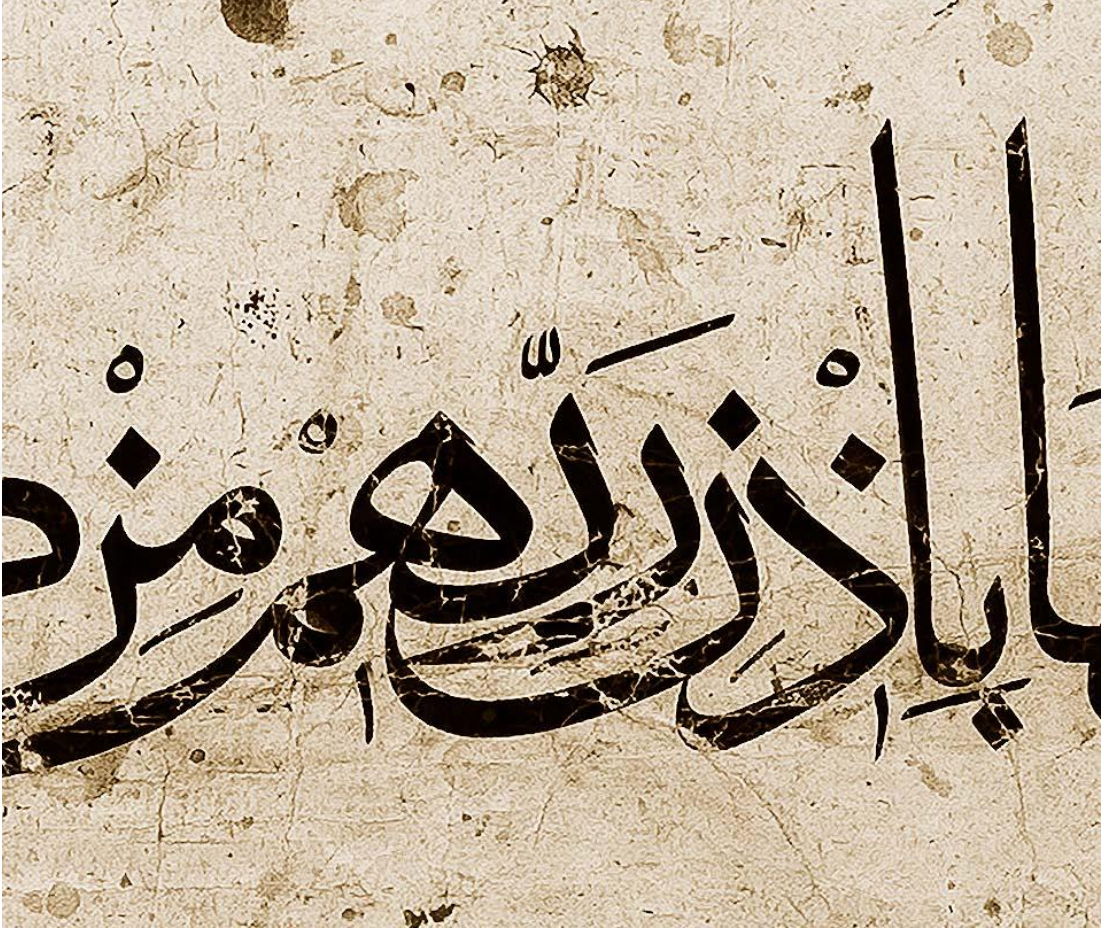 بِإِذْنِ رَبِّهِمْ مِنْ